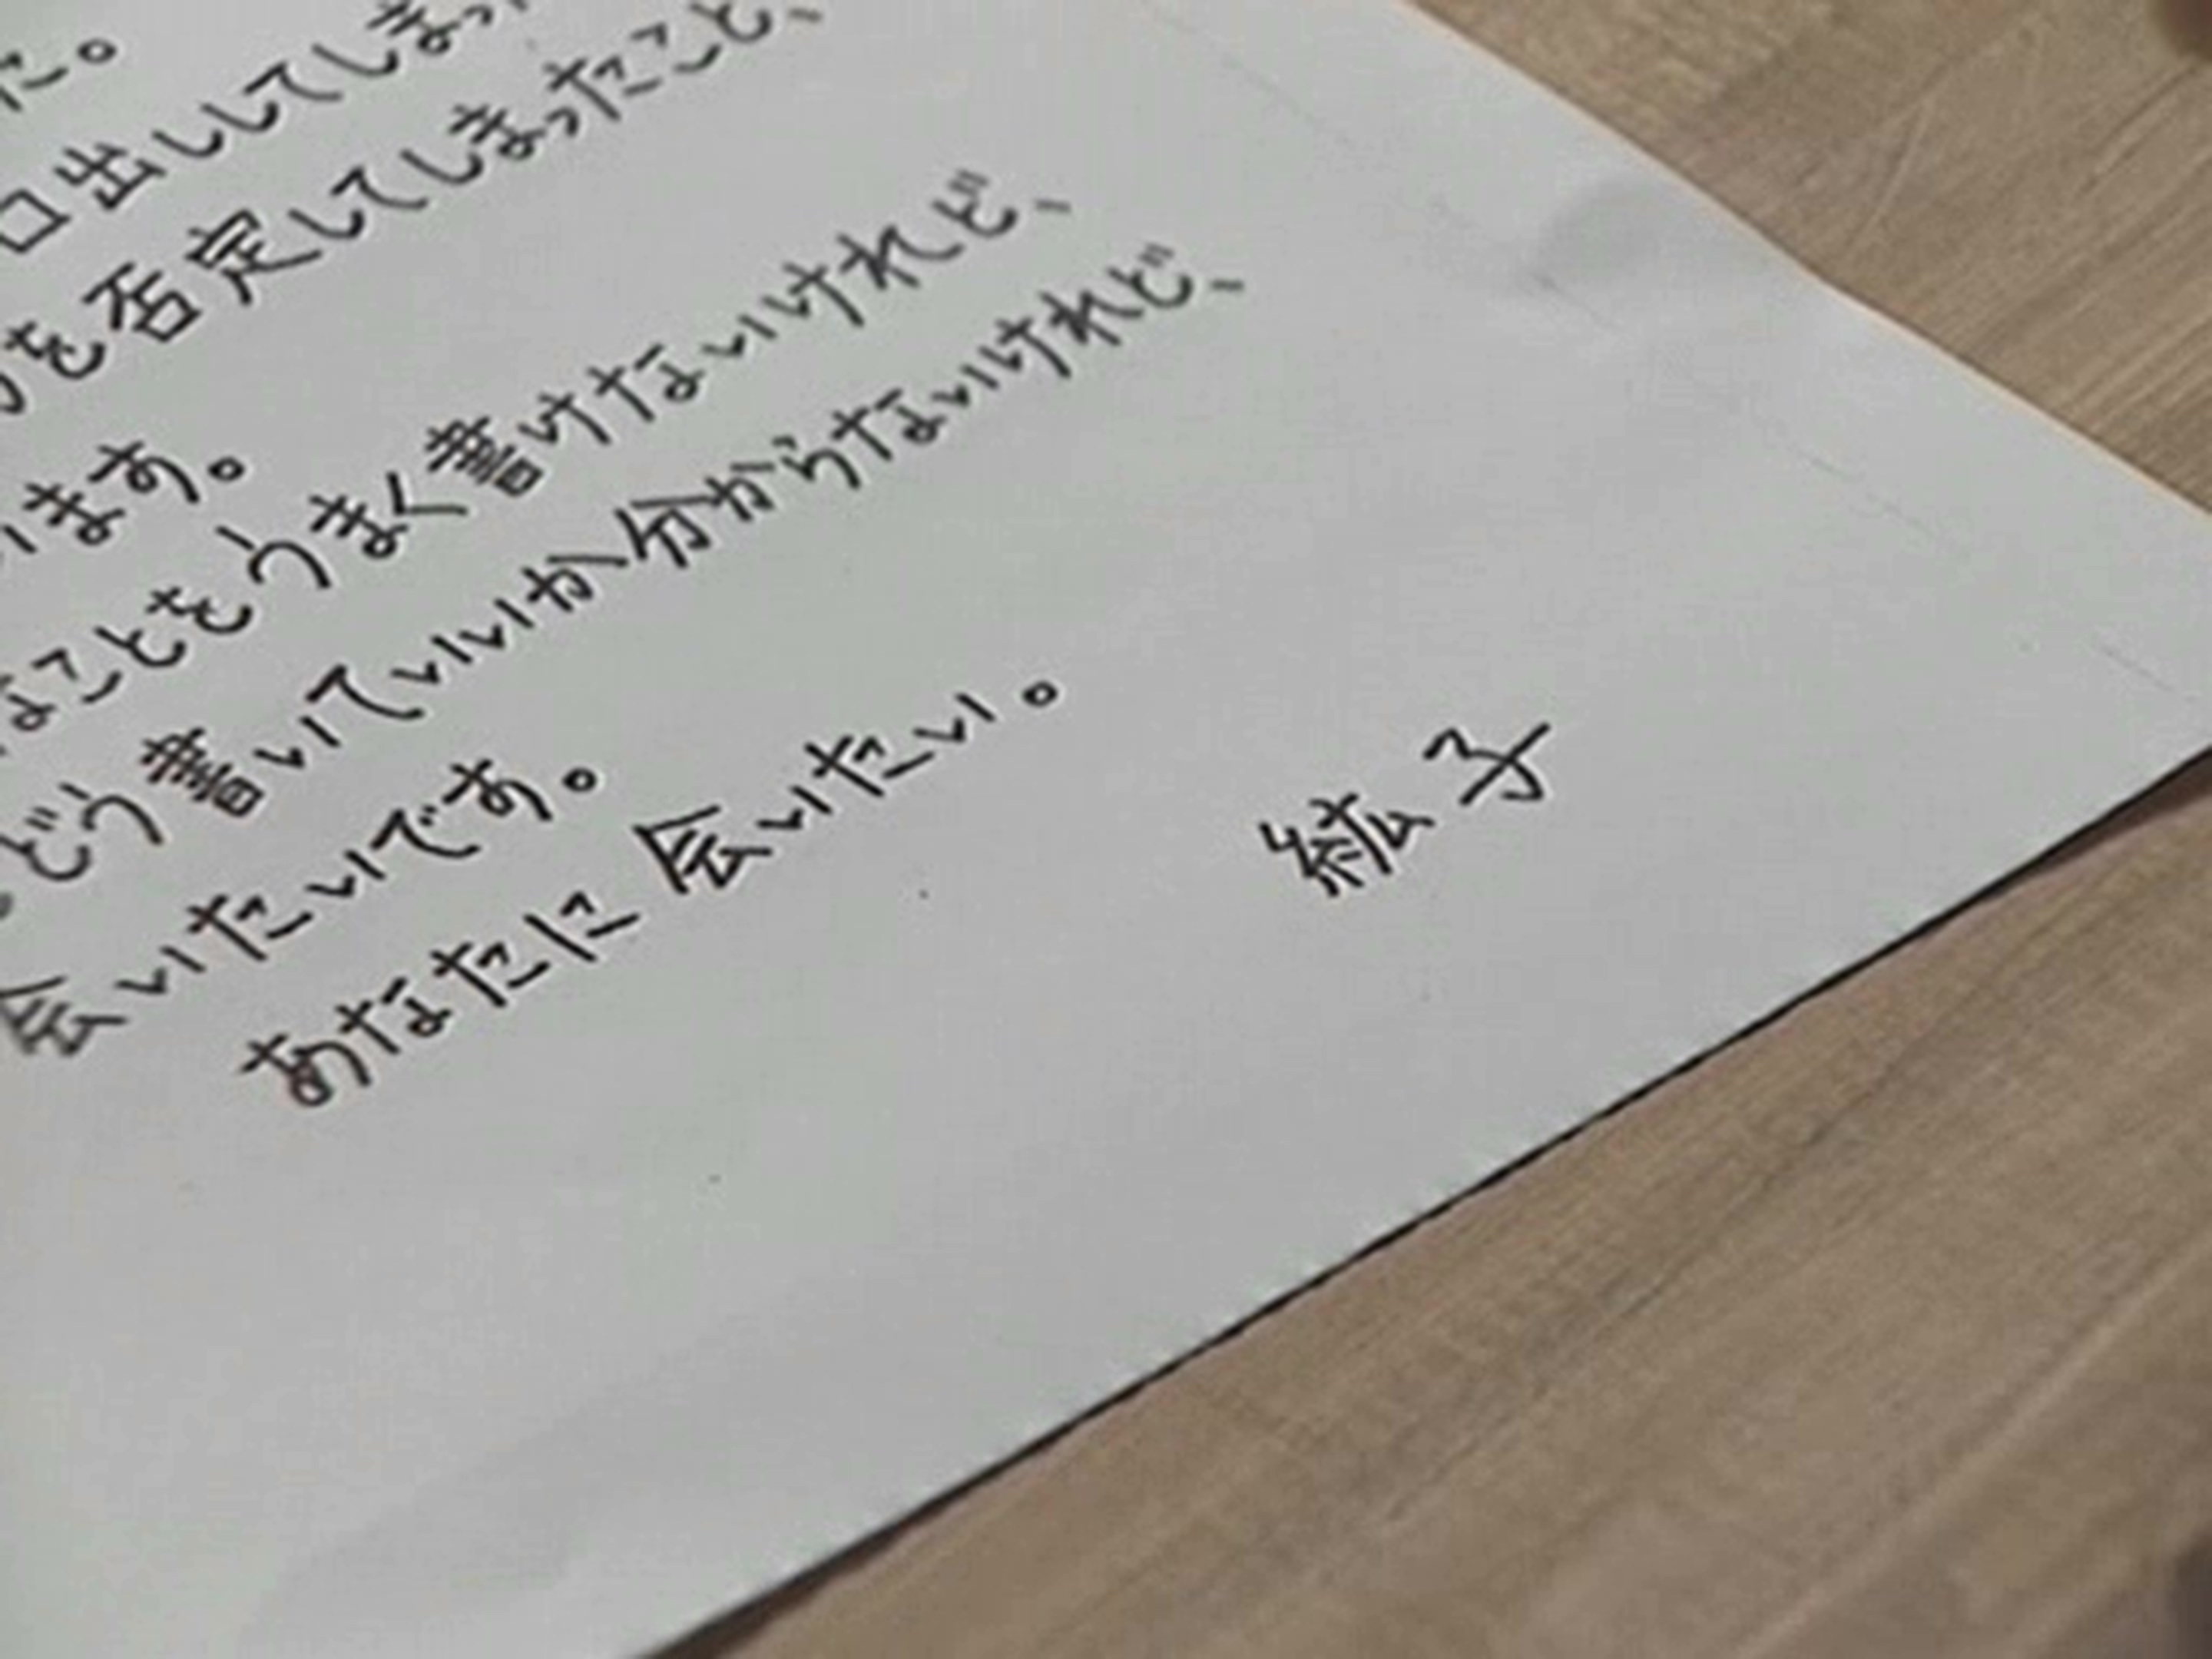 た。
口出ししてしまっ
を否定してしまったこと、
います。
なことをうまく書けないけれど、
どう書いていいか分からないけれど、
会いたいです。
あなたに会いたい。
紘子